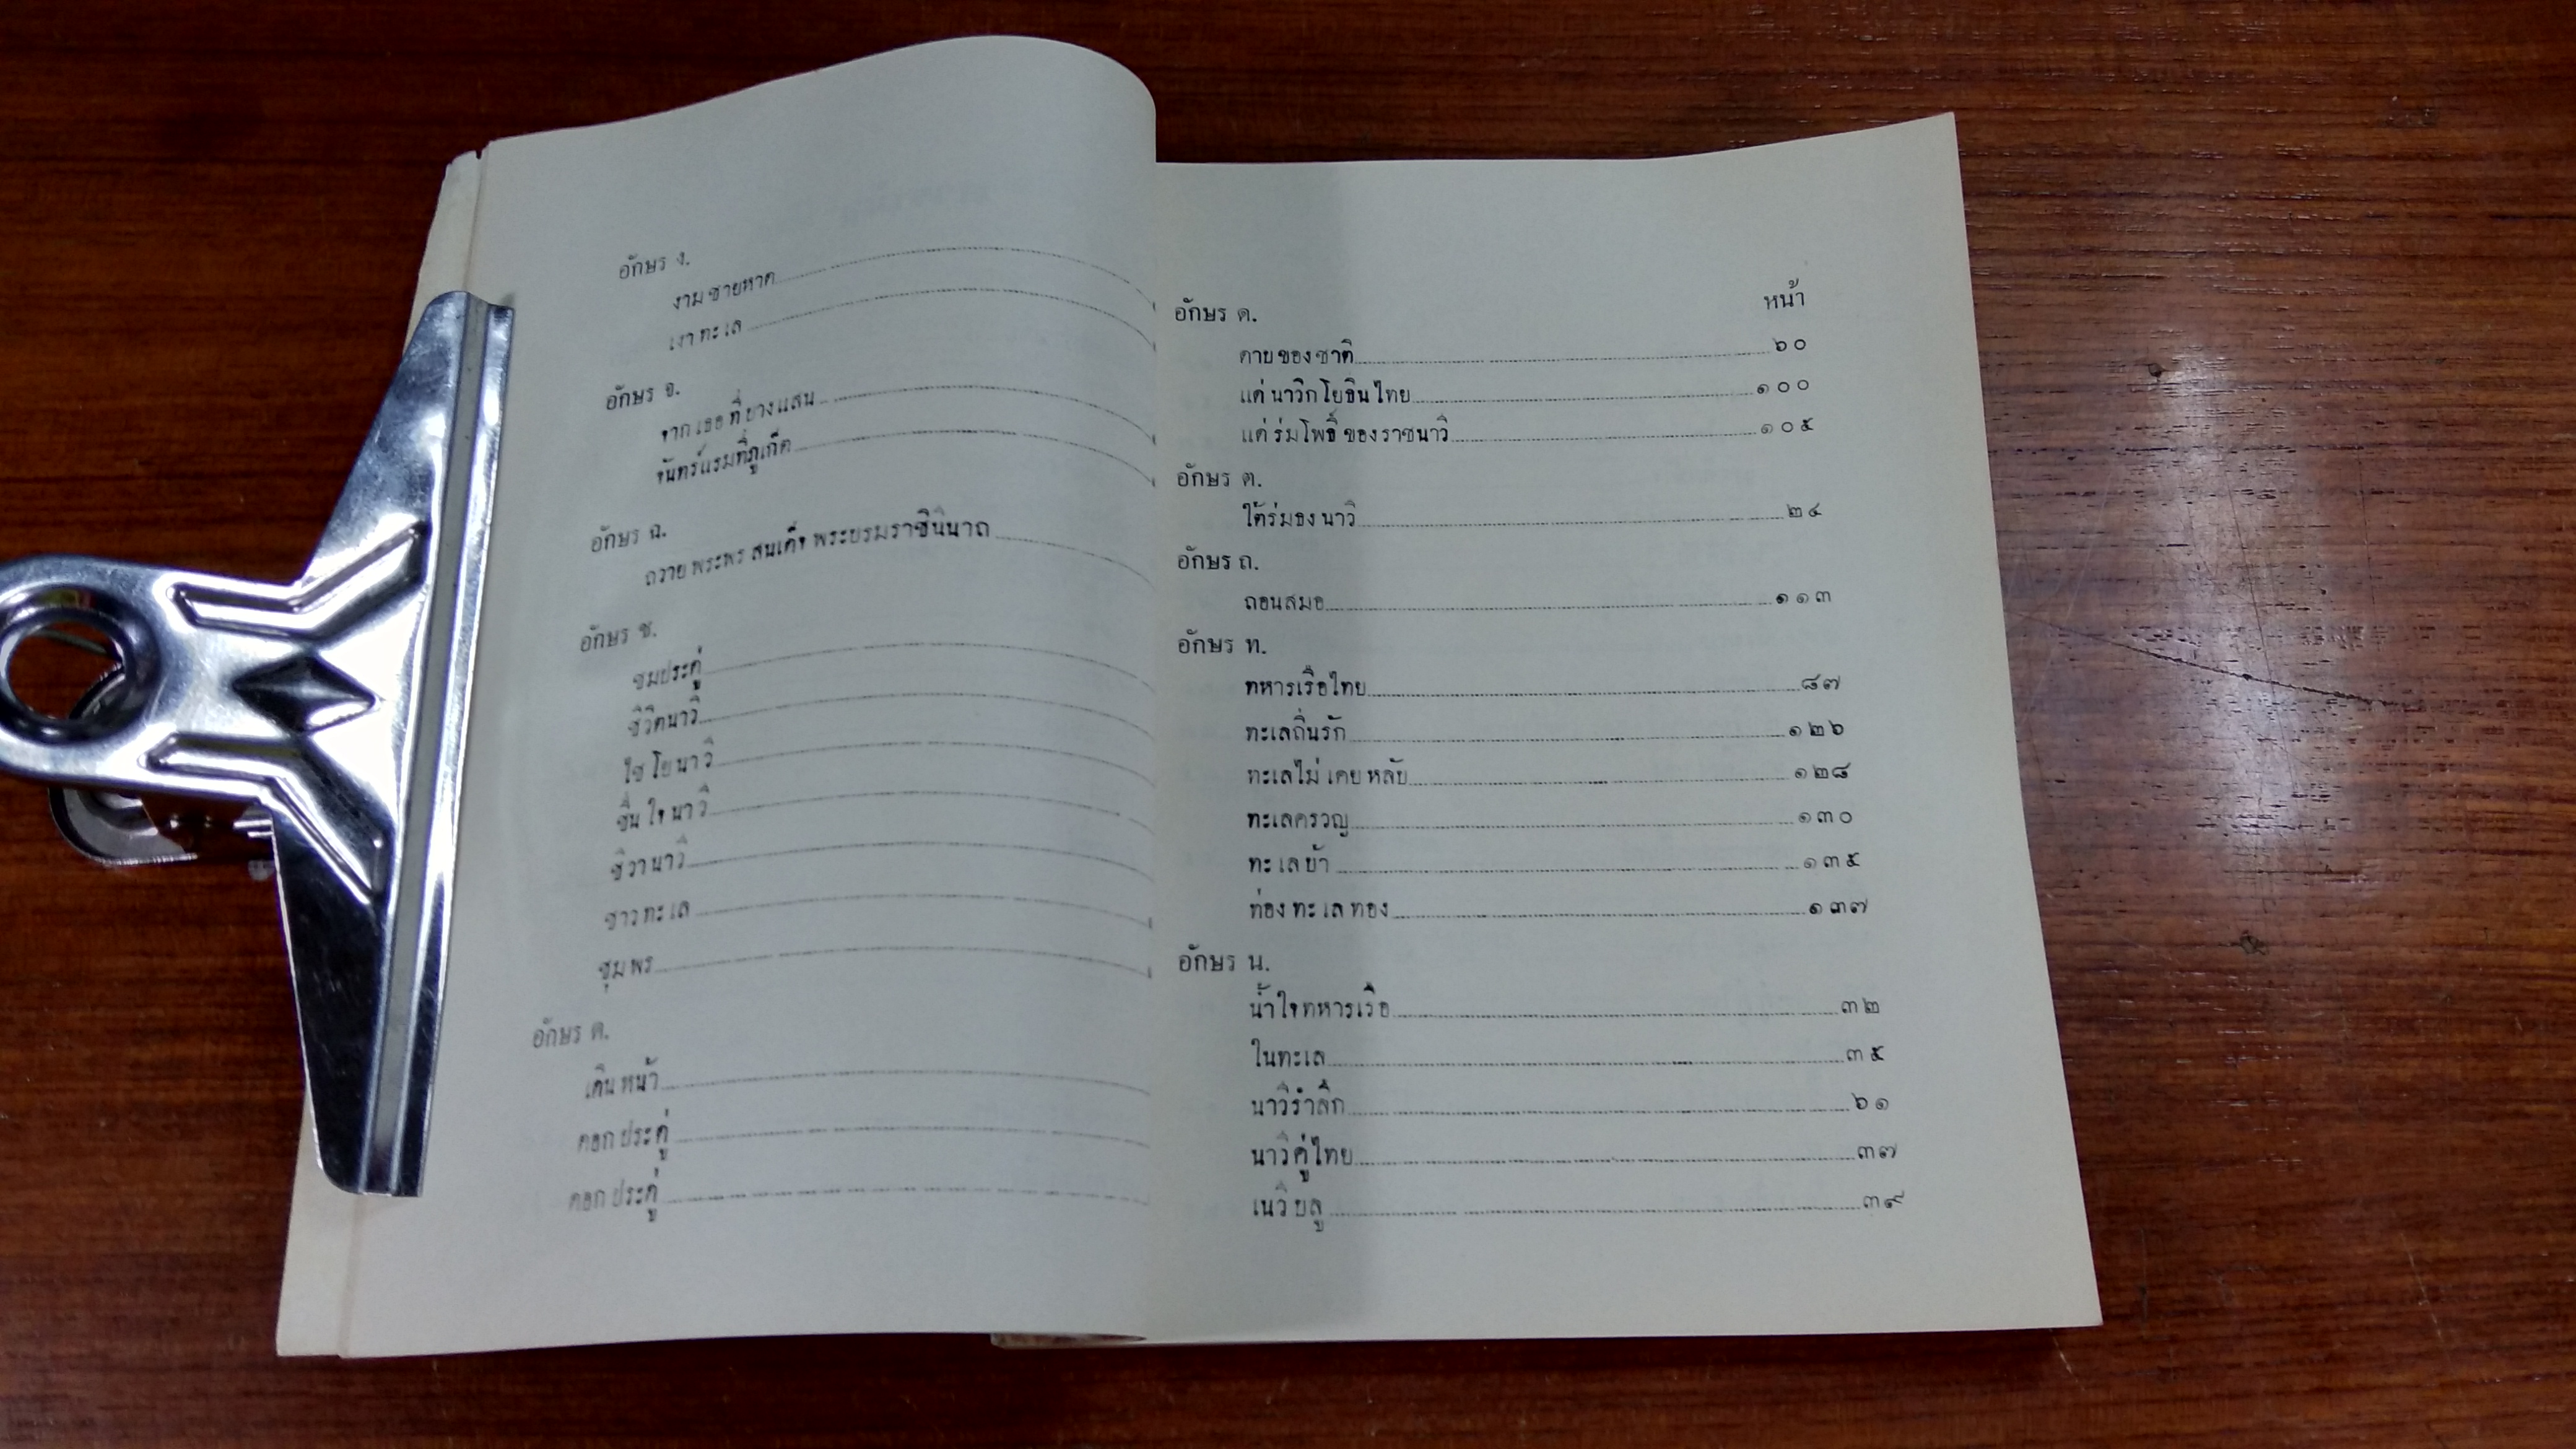 อักษร ง.
งามชายหาด
เงาทะเล
อักษร จ.
จากเธอที่บางแสน
จันทร์แรมที่ภูเก็ต
อักษร ฉ.
ถวายพระพร สมเด็จพระบรมราชินีนาถ
อักษร ช.
ชมประดู่
ชีวิตนาวี
ไชโยนาวี
ชื่นใจนาวี
ชีวานาวี
ชาวทะเล
ชุมพร
อักษร ด.
เดินหน้า
ดอกประดู่
ดอกประดู่
หน้า
อักษร ด.
ดาบของชาติ ๖๐
แด่นาวิกโยธินไทย ๑๐๐
แด่ร่มโพธิ์ของราชนาวี ๑๐๕
อักษร ต.
ใต้ร่มธงนาวี ๒๔
อักษร ถ.
ถอนสมอ ๑๑๓
อักษร ท.
ทหารเรือไทย ๘๗
ทะเลถิ่นรัก ๑๒๖
ทะเลไม่เคยหลับ ๑๒๘
ทะเลครวญ ๑๓๐
ทะเลบ้า ๑๓๕
ท่องทะเลทอง ๑๓๗
อักษร น.
น้ำใจทหารเรือ ๓๒
ในทะเล ๓๕
นาวีรำลึก ๖๑
นาวีคู่ไทย ๓๗
เนวีบลู ๓๙